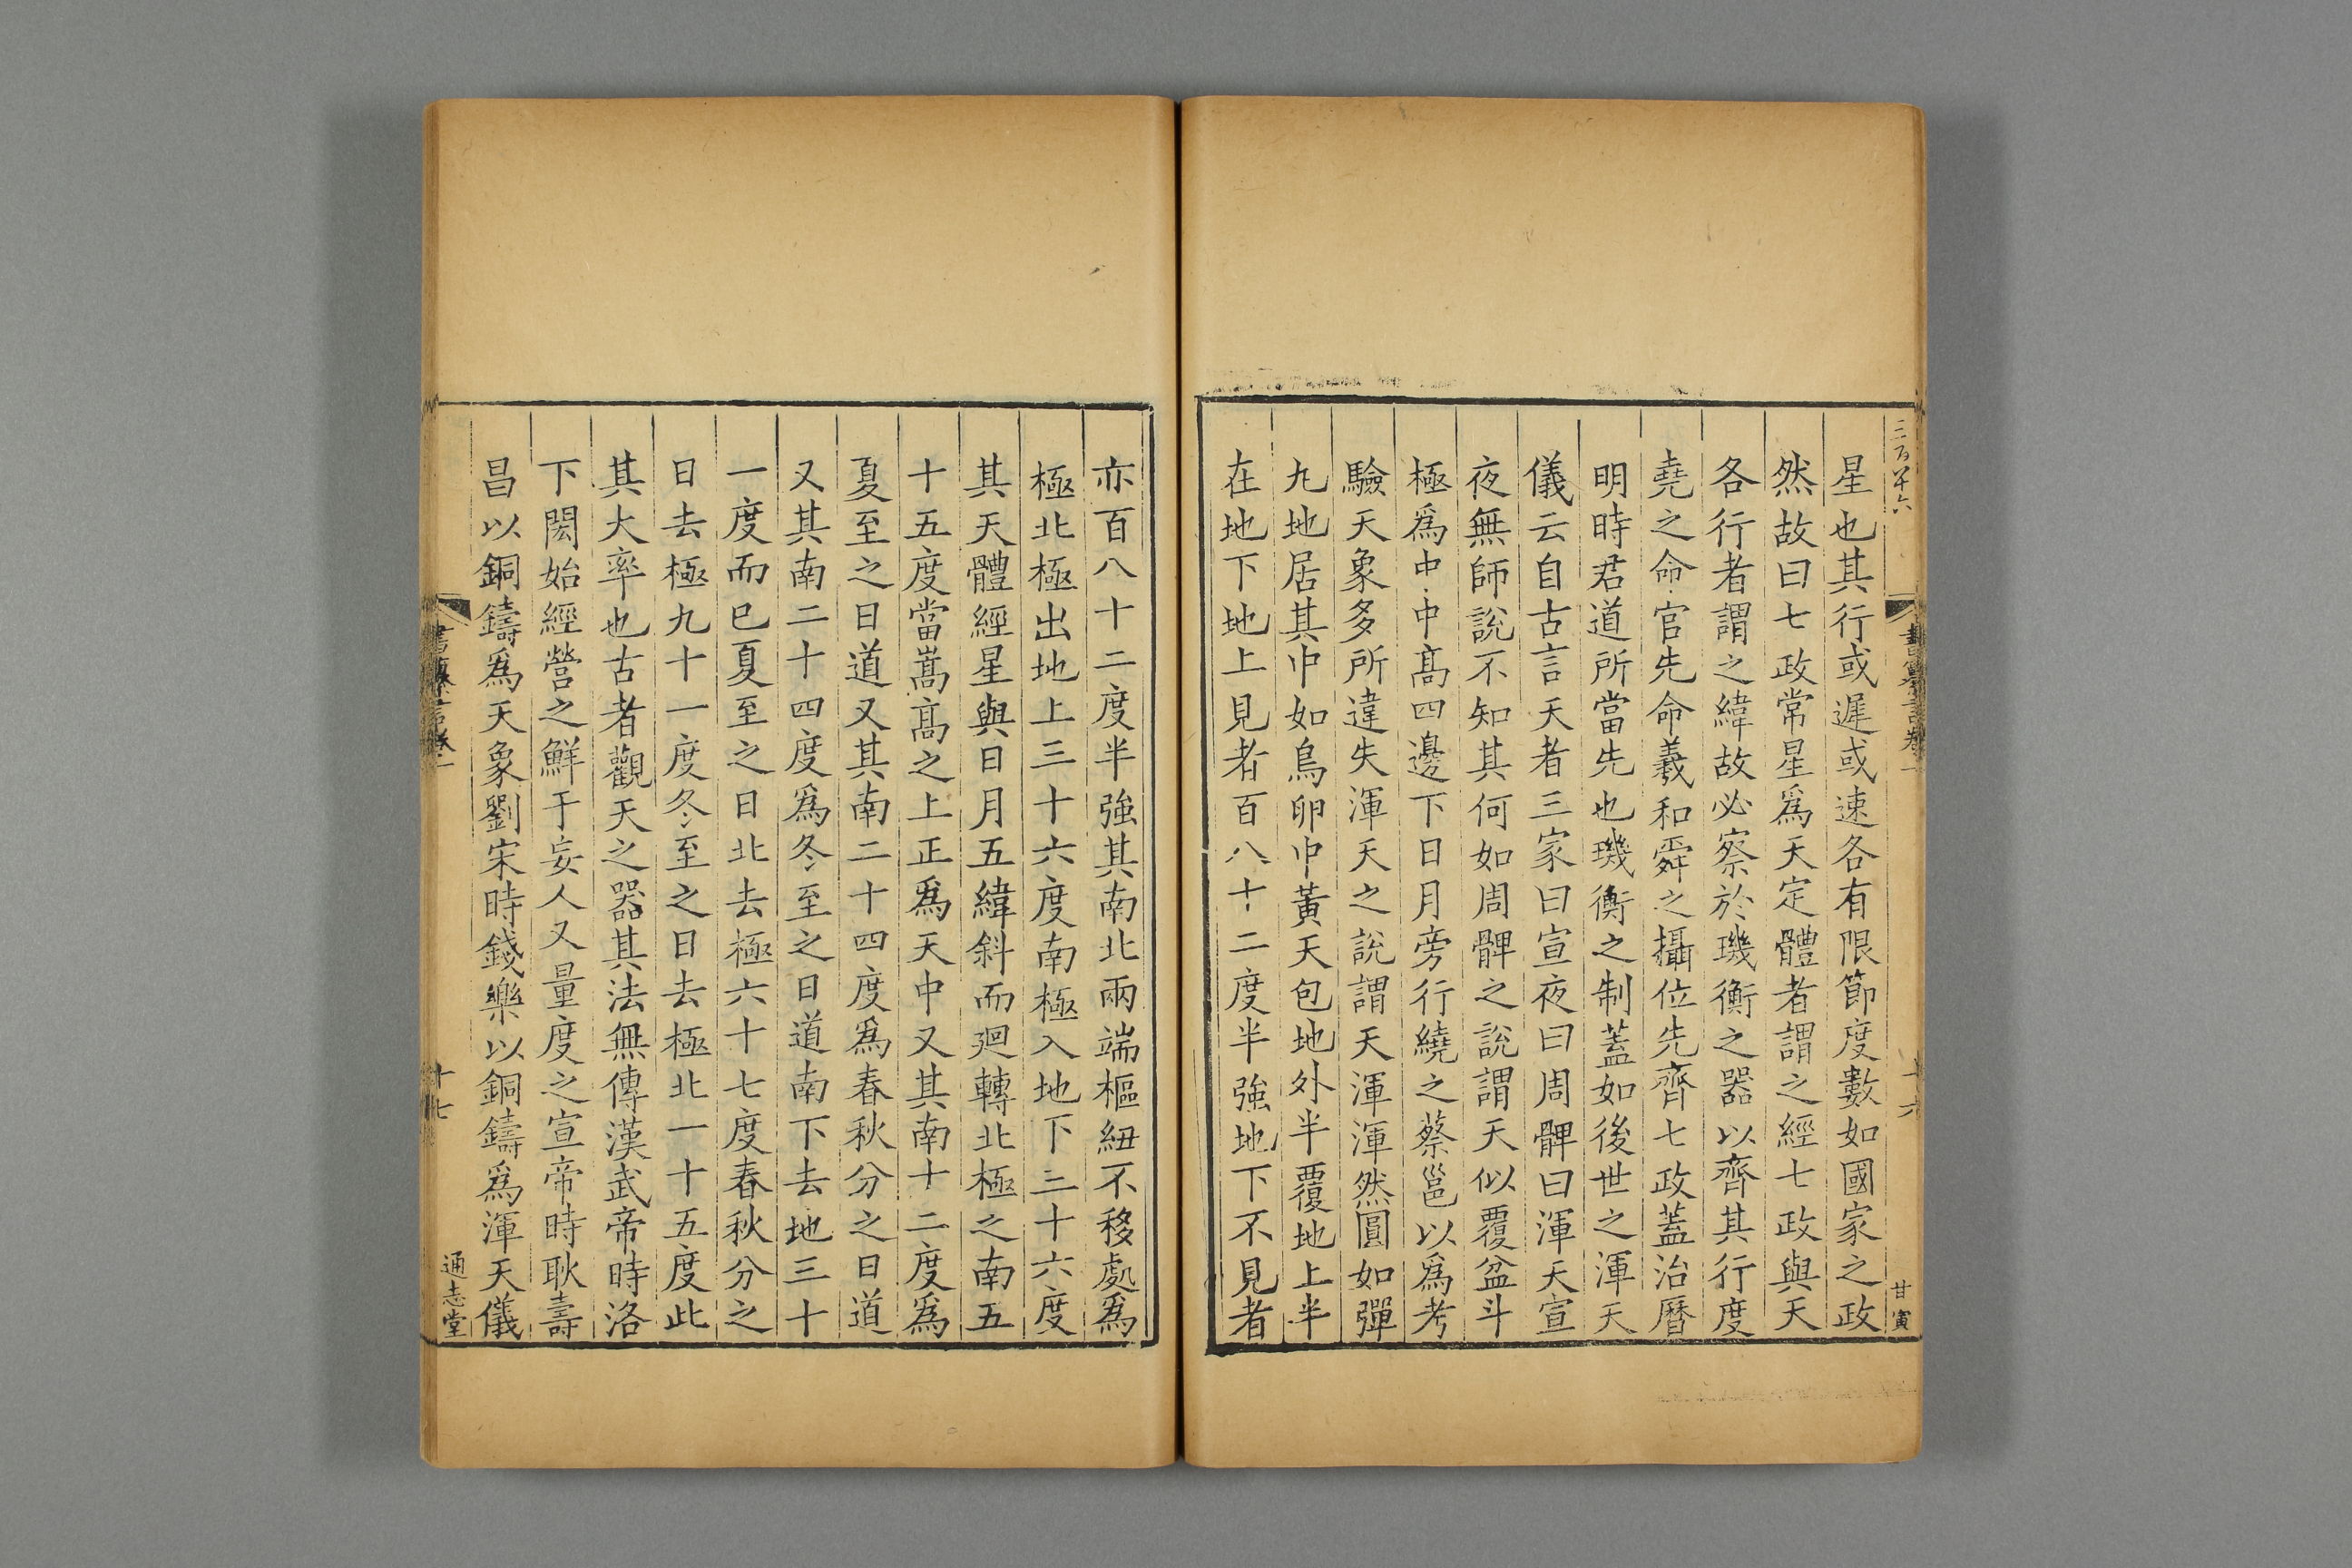 三百四十六
星也其行或遲或速各有限節度數如國家之政
然故曰七政常星爲天定體者謂之經七政與天
各行者謂之緯故必察於璣衡之器以齊其行度
堯之命官先命羲和舜之攝位先齊七政蓋治曆
明時君道所當先也璣衡之制蓋如後世之渾天
儀云自古言天者三家曰宣夜曰周髀曰渾天宣
夜無師說不知其何如周髀之說謂天似覆盆斗
極爲中中高四邊下日月旁行繞之蔡邕以爲考
驗天象多所違失渾天之說謂天渾渾然圓如彈
九地居其中如鳥卵中黃天包地外半覆地上半
在地下地上見者百八十二度半強地下不見者
十六
甘寅
亦百八十二度半強其南北兩端樞紐不移處爲
極北極出地上三十六度南極入地下三十六度
其天體經星與日月五緯斜而廻轉北極之南五
十五度當嵩高之上正爲天中又其南十二度爲
夏至之日道又其南二十四度爲春秋分之日道
又其南二十四度爲冬至之日道南下去地三十
一度而已夏至之日北去極六十七度春秋分之
日去極九十一度冬至之日去極北一十五度此
其大率也古者觀天之器其法無傳漢武帝時洛
下閎始經營之鮮于妄人又量度之宣帝時耿壽
昌以銅鑄爲天象劉宋時錢樂以銅鑄爲渾天儀
十七
通志堂